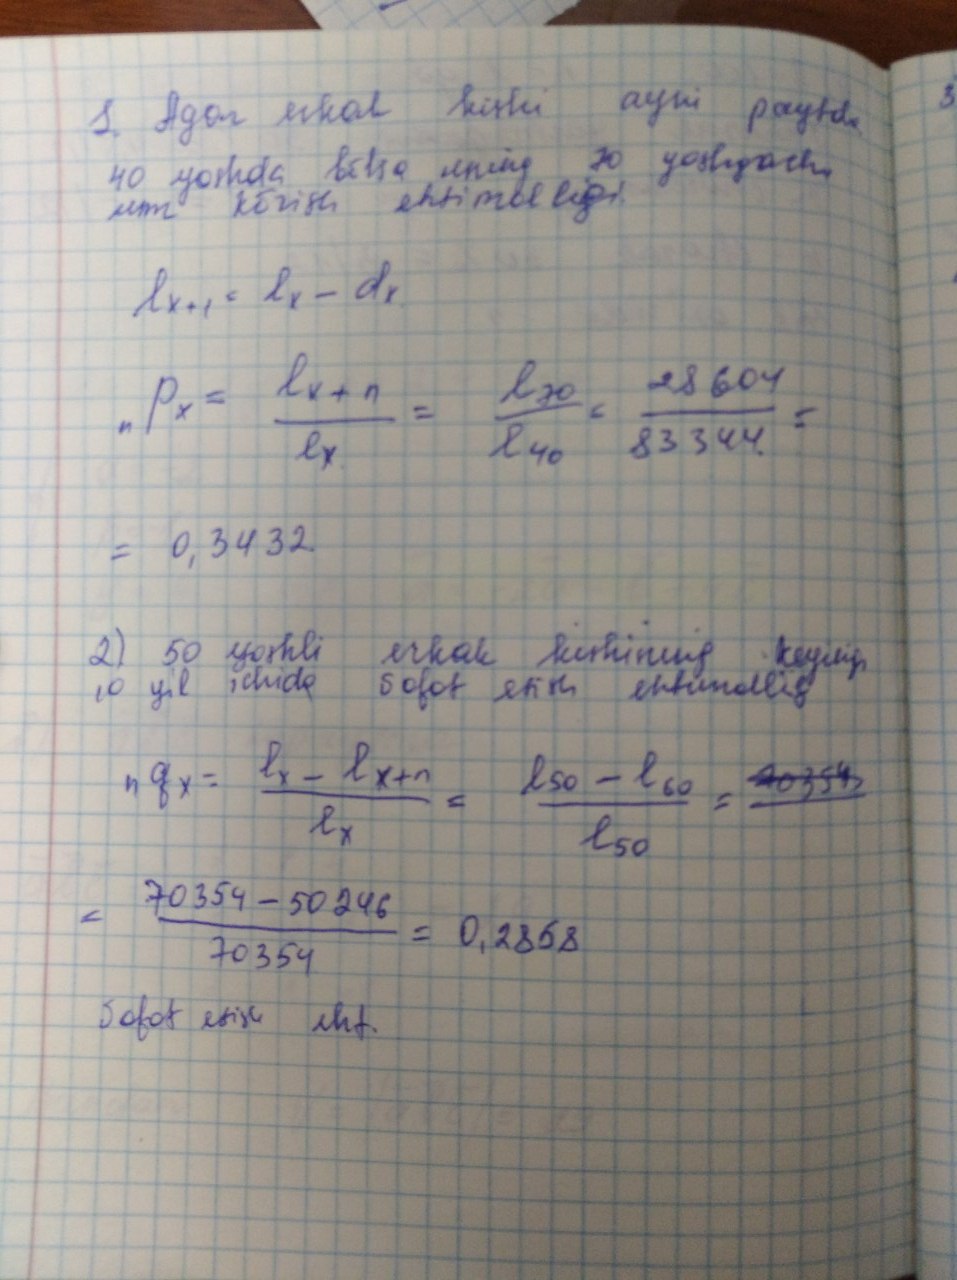 1. Agar erkak kishi ayni paytda
40 yoshda bo'lsa uning 70 yoshgacha
umr ko'rish ehtimolligi.
lx+1 = lx - dx
nPx = lx+n / lx = l70 / l40 = 28604 / 83344 =
= 0,3432
2) 50 yoshli erkak kishining keyingi
10 yil ichida Safot etish ehtimolligi
nqx = lx - lx+n / lx = l50 - l60 / l50 =
= 70354 - 50246 / 70354 = 0,2858
Safot etish eht.
3